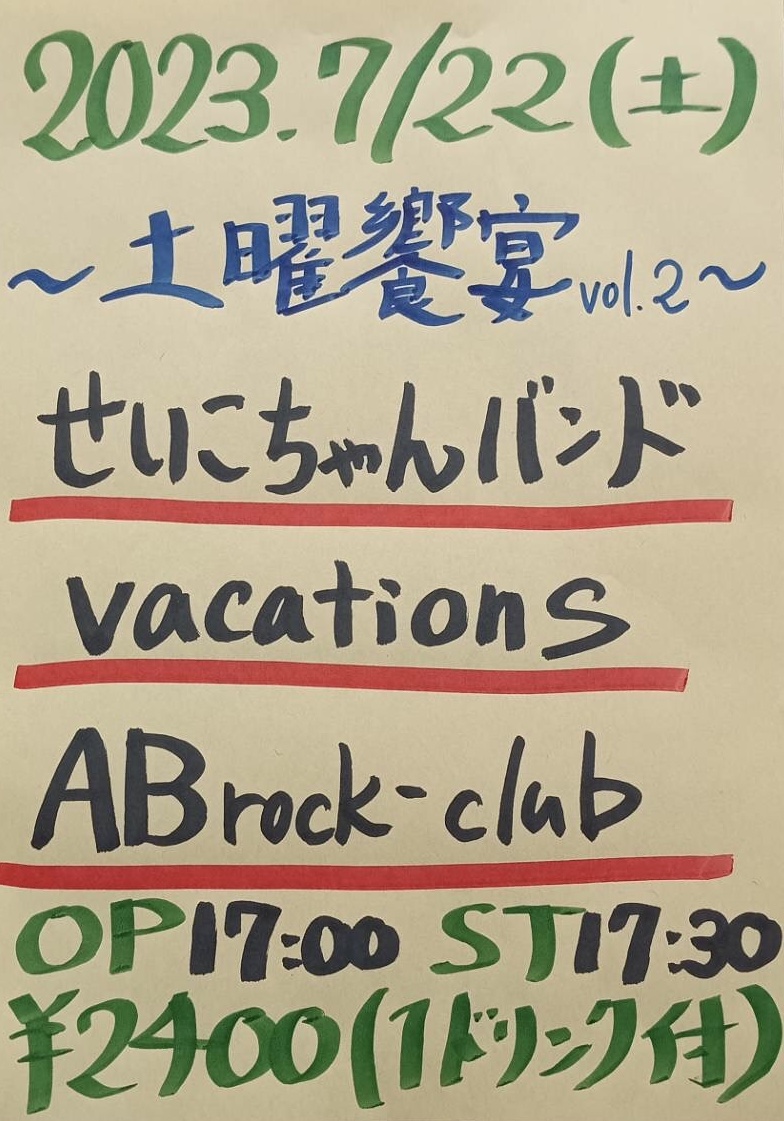 2023.7/22(土)
～土曜饗宴vol.2～
せいこちゃんバンド
vacations
ABrock-club
OP17:00 ST17:30
¥2400(1ドリンク付)